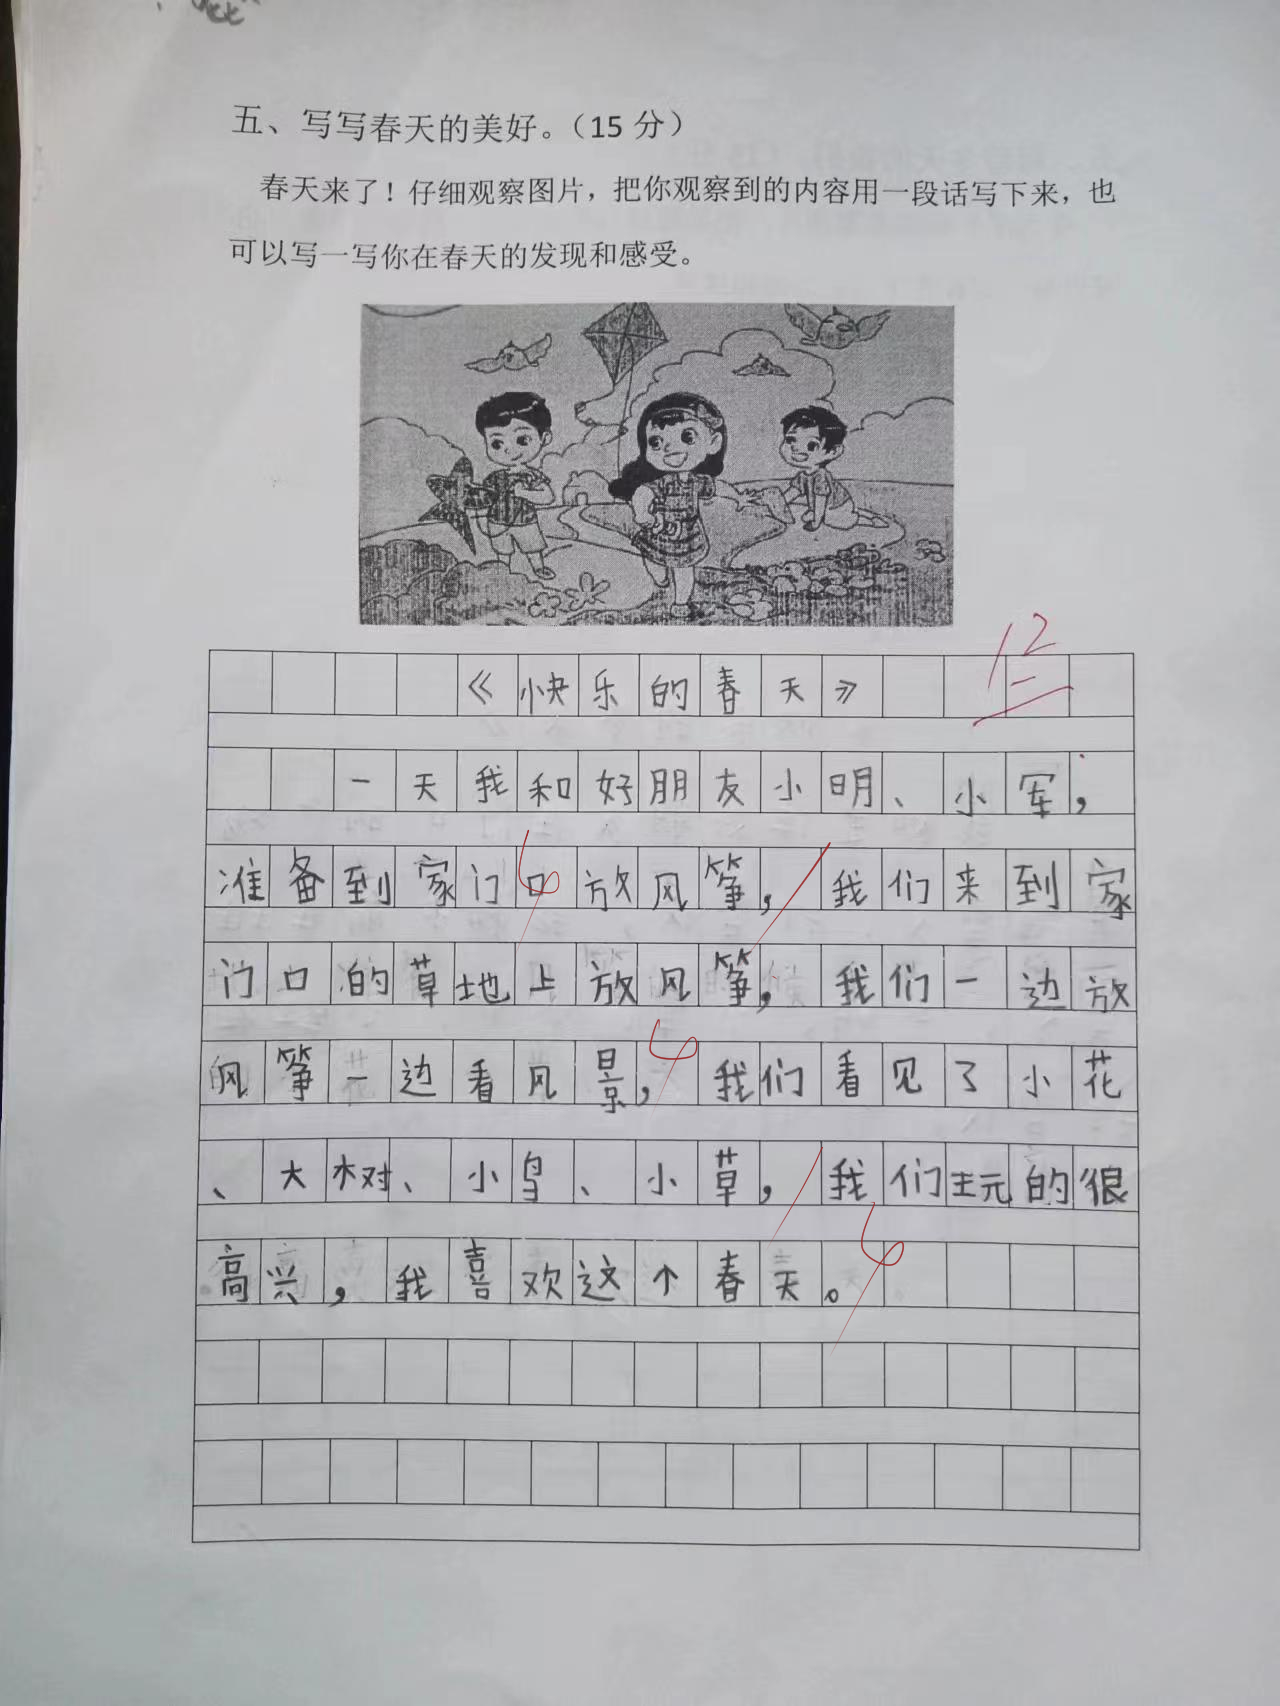 五、写写春天的美好。（15分）
春天来了！仔细观察图片，把你观察到的内容用一段话写下来，也
可以写一写你在春天的发现和感受。
12
《快乐的春天》
一天我和好朋友小明、小军，
准备到家门口放风筝，我们来到家
门口的草地上放风筝，我们一边放
风筝一边看风景，我们看见了小花
、大树、小鸟、小草，我们玩的很
高兴，我喜欢这个春天。